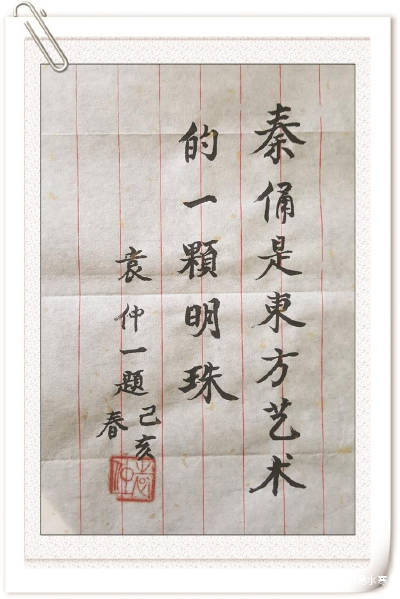 秦俑是東方艺术
的一顆明珠
袁仲一題
己亥
春